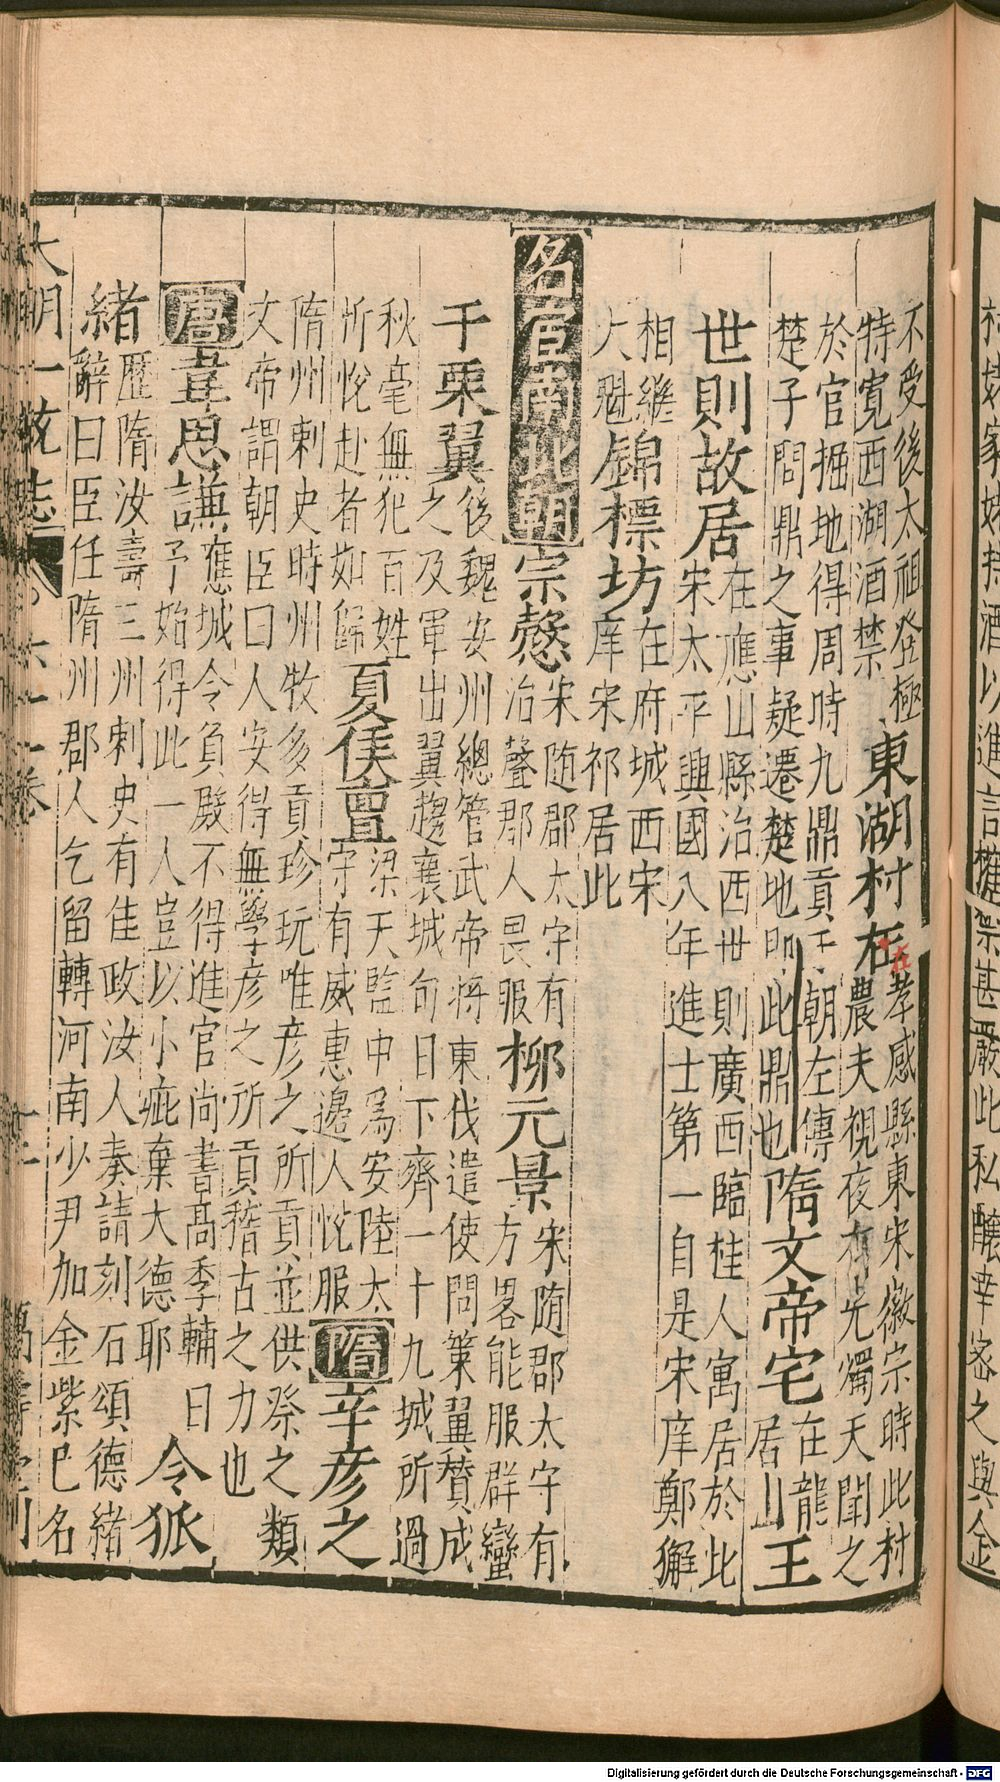 不受後太祖登極
特寬西湖酒禁
東湖村在
孝感縣東宋徽宗時此村
農夫視夜有光燭天聞之
於官掘地得周時九鼎貢于朝左傳
楚子問鼎之事疑遷楚地即此鼎也
隋文帝宅
在龍
居山
王
世則故居
在應山縣治西世則廣西臨桂人寓居於此
宋太平興國八年進士第一自是宋庠鄭獬
相繼
大魁
錦標坊
在府城西宋
庠宋祁居此
名宦南北朝
宗慤
宋随郡太守有
治聲郡人畏服
柳元景
宋随郡太守有
方畧能服群蠻
千栗翼
後魏安州總管武帝將東伐遣使問策翼賛成
之及軍出翼趨襄城旬日下齊一十九城所過
秋毫無犯百姓
忻悅赴者如歸
夏侯亶
梁天監中為安陸太
守有威惠邊人悅服
隋
辛彦之
隋州刺史時州牧多貢珍玩唯彦之所貢並供祭之類
文帝謂朝臣曰人安得無學彦之所貢稽古之力也
唐
韋思謙
應城令負殿不得進官尚書髙季輔曰
予始得此一人豈以小疵棄大德耶
令狐
緒
歷隋汝壽三州刺史有佳政汝人奏請刻石頌德緒
辭曰臣任隋州郡人乞留轉河南少尹加金紫巳名
大明一統志
六十一卷
十
萬壽堂刊
在